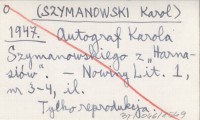 0 (SZYMANOWSKI Karol)
1947. Autograf Karola
Szymanowskiego z „Harna-
siów". – Nowiny Lit. 1,
nr 3-4, il.
Tylko reprodukcja.